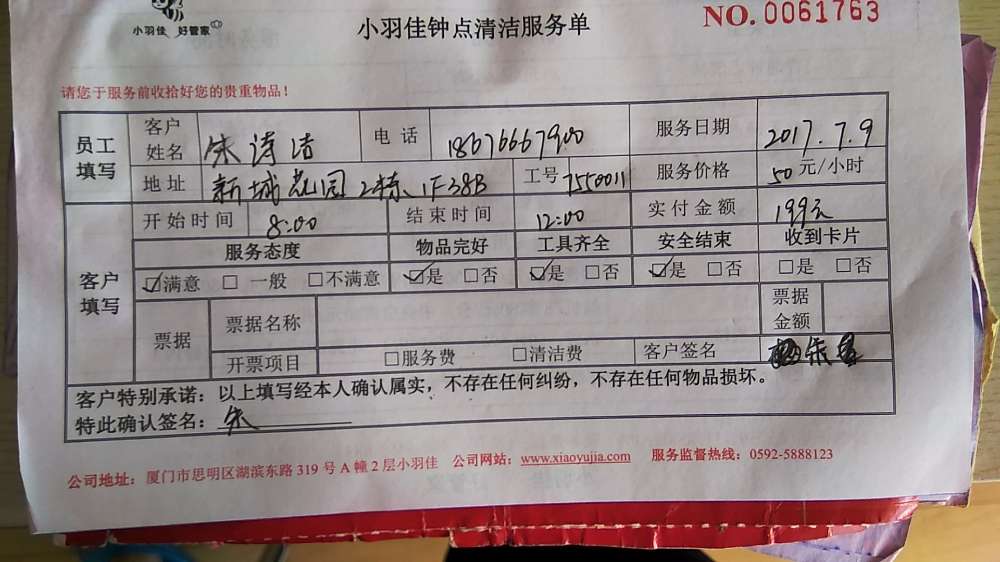 小羽佳 好管家
小羽佳钟点清洁服务单
NO. 0061763
请您于服务前收拾好您的贵重物品！
员工填写 客户姓名 朱涛洁 电话 18676667900 服务日期 2017.7.9
地址 新城花园2栋1F38B 工号 7550011 服务价格 50元/小时
客户填写 开始时间 8:00 结束时间 12:00 实付金额 199元
服务态度 物品完好 工具齐全 安全结束 收到卡片
☑满意 □一般 □不满意 ☑是 □否 ☑是 □否 ☑是 □否 □是 □否
票据 票据名称 票据金额
开票项目 □服务费 □清洁费 客户签名
客户特别承诺：以上填写经本人确认属实，不存在任何纠纷，不存在任何物品损坏。
特此确认签名：朱
公司地址：厦门市思明区湖滨东路319号A幢2层小羽佳 公司网站：www.xiaoyujia.com 服务监督热线：0592-5888123